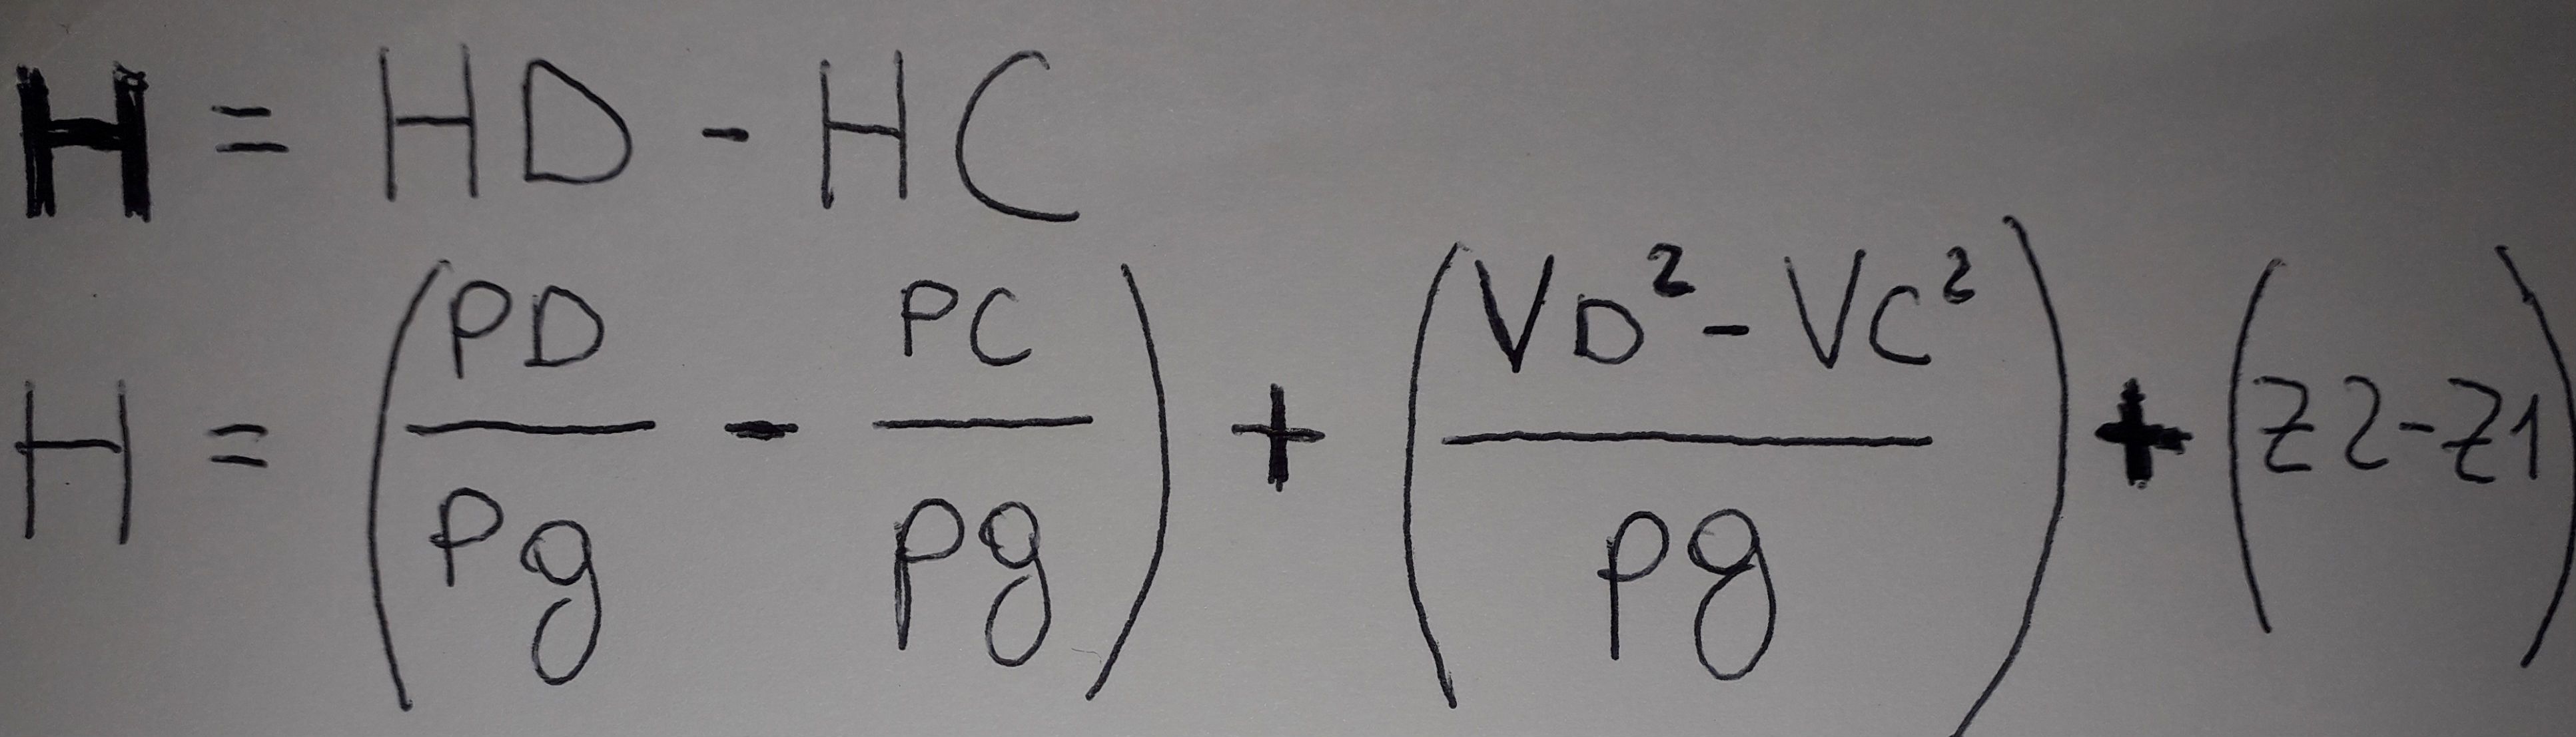 H = HD - HC
H = (PD/Pg - PC/Pg) + (VD² - VC²/Pg) + (Z2-Z1)